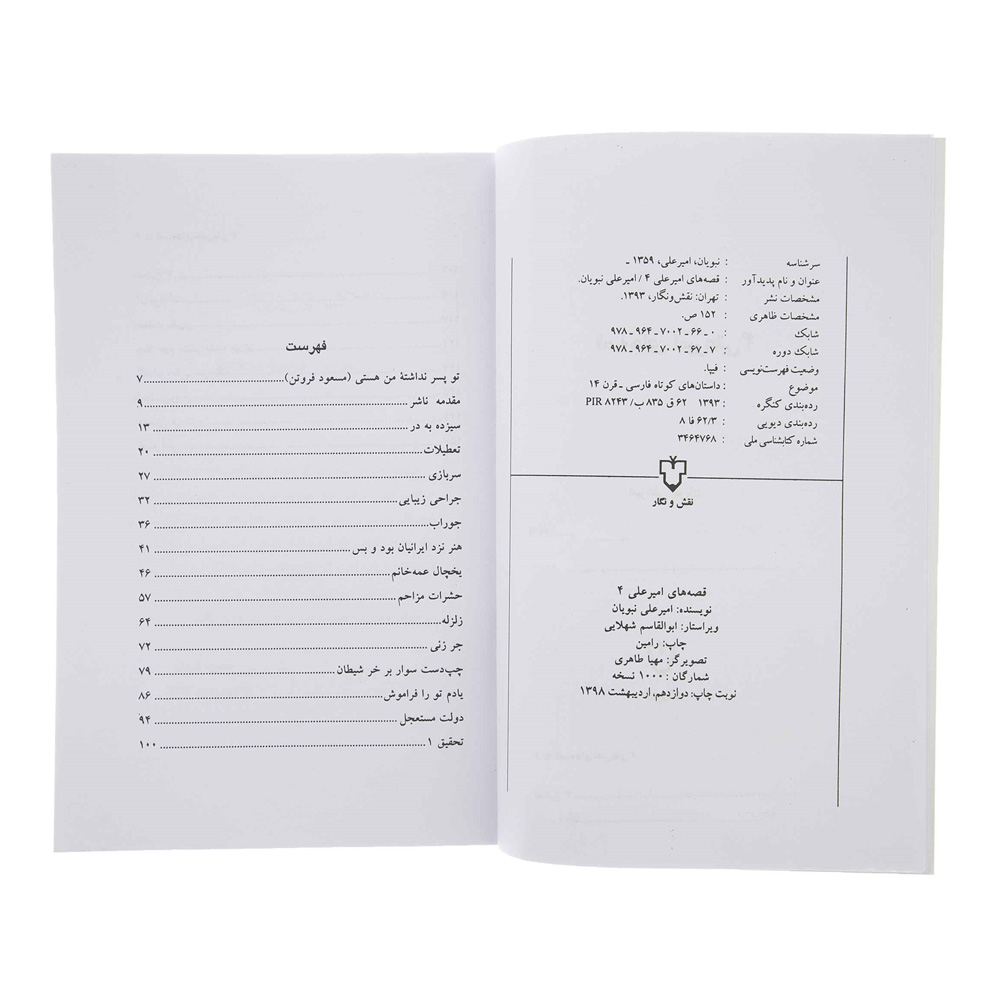 سرشناسه : نبویان، امیرعلی، ۱۳۵۹ ـ
عنوان و نام پدیدآور : قصه‌های امیرعلی ۴ / امیرعلی نبویان.
مشخصات نشر : تهران: نقش‌ونگار، ۱۳۹۳.
مشخصات ظاهری : ۱۵۲ ص.
شابک : ۰ ـ ۶۶ ـ ۷۰۰۲ ـ ۹۶۴ ـ ۹۷۸
شابک دوره : ۷ ـ ۶۷ ـ ۷۰۰۲ ـ ۹۶۴ ـ ۹۷۸
وضعیت فهرست‌نویسی : فیپا.
موضوع : داستان‌های کوتاه فارسی ـ قرن ۱۴
رده‌بندی کنگره : ۱۳۹۳ ۶۲ ق ۸۳۵ ب/ PIR ۸۲۴۳
رده‌بندی دیویی : ۶۲/۳ فا ۸
شماره کتابشناسی ملی : ۳۴۶۴۷۶۸
نقش و نگار
قصه‌های امیرعلی ۴
نویسنده: امیرعلی نبویان
ویراستار: ابوالقاسم شهلایی
چاپ: رامین
تصویرگر: مهیا طاهری
شمارگان: ۱۰۰۰ نسخه
نوبت چاپ: دوازدهم، اردیبهشت ۱۳۹۸
فهرست
تو پسر نداشتهٔ من هستی (مسعود فروتن)........ ۷
مقدمه ناشر ........ ۹
سیزده به در ........ ۱۳
تعطیلات ........ ۲۰
سربازی ........ ۲۷
جراحی زیبایی ........ ۳۲
جوراب ........ ۳۶
هنر نزد ایرانیان بود و بس ........ ۴۱
یخچال عمه‌خانم ........ ۴۶
حشرات مزاحم ........ ۵۷
زلزله ........ ۶۴
جر زنی ........ ۷۲
چپ‌دست سوار بر خر شیطان ........ ۷۹
یادم تو را فراموش ........ ۸۶
دولت مستعجل ........ ۹۴
تحقیق ۱ ........ ۱۰۰